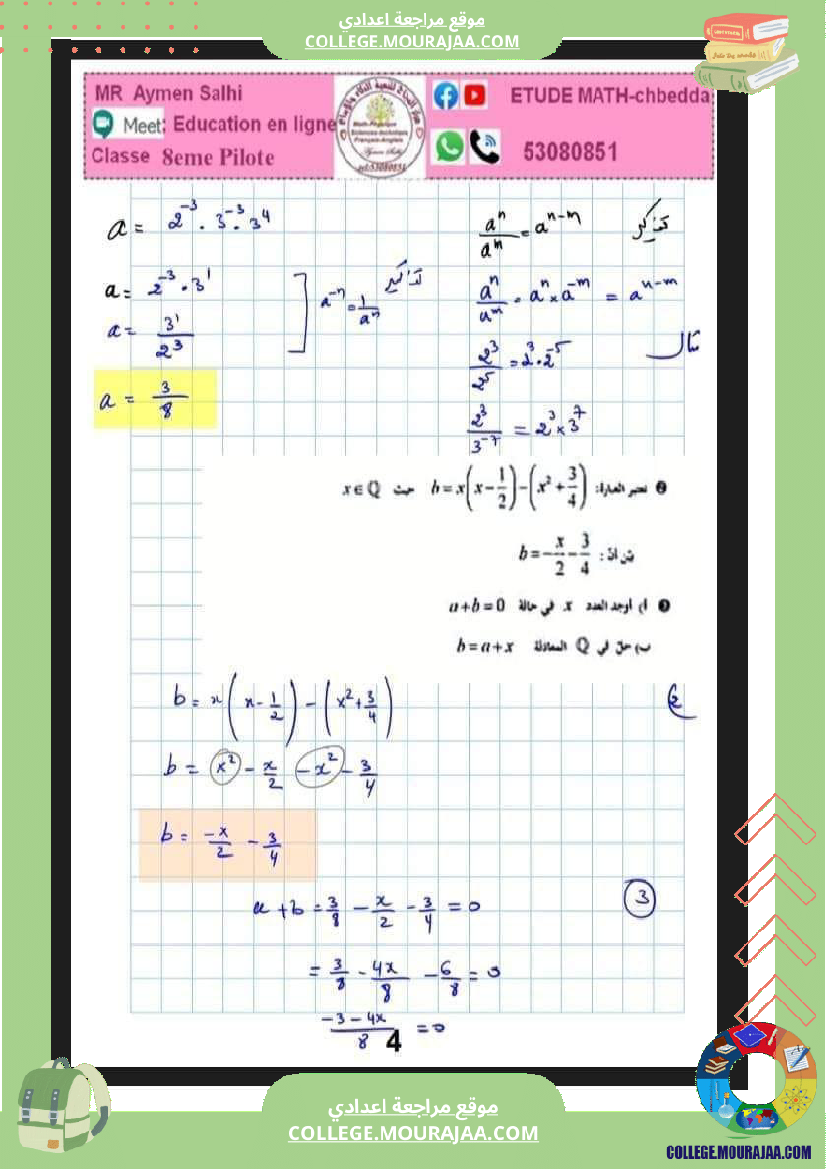 موقع مراجعة اعدادي
COLLEGE.MOURAJAA.COM
MR Aymen Salhi
Meet: Education en ligne
Classe 8eme Pilote
ETUDE MATH-chbedda
53080851
a = 2^-3 . 3^-3 . 3^4
a = 2^-3 . 3^1
a = 3^1/2^3
a = 3/8
a^-n = 1/a^n
تذكير
a^n/a^m = a^n-m
تذكير
a^n/a^m = a^n × a^-m = a^n-m
مثال
2^3/2^5 = 2^3 . 2^-5
2^3/3^-7 = 2^3 × 3^7
❷ نعتبر العبارة: b = x(x - 1/2) - (x² + 3/4) حيث x ∈ Q
بيّن أنّ: b = -x/2 - 3/4
❸ أ) أوجد العدد x في حالة a + b = 0
ب) حل في Q المعادلة b = a + x
2)
b = x(x - 1/2) - (x² + 3/4)
b = x² - x/2 - x² - 3/4
b = -x/2 - 3/4
3
a + b = 3/8 - x/2 - 3/4 = 0
= 3/8 - 4x/8 - 6/8 = 0
-3-4x/8 = 0
4
موقع مراجعة اعدادي
COLLEGE.MOURAJAA.COM
COLLEGE.MOURAJAA.COM